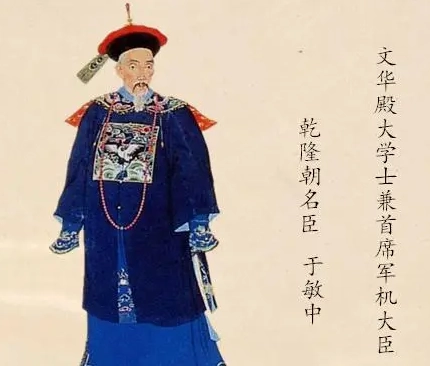 文华殿大学士兼首席军机大臣
乾隆朝名� 于敏中